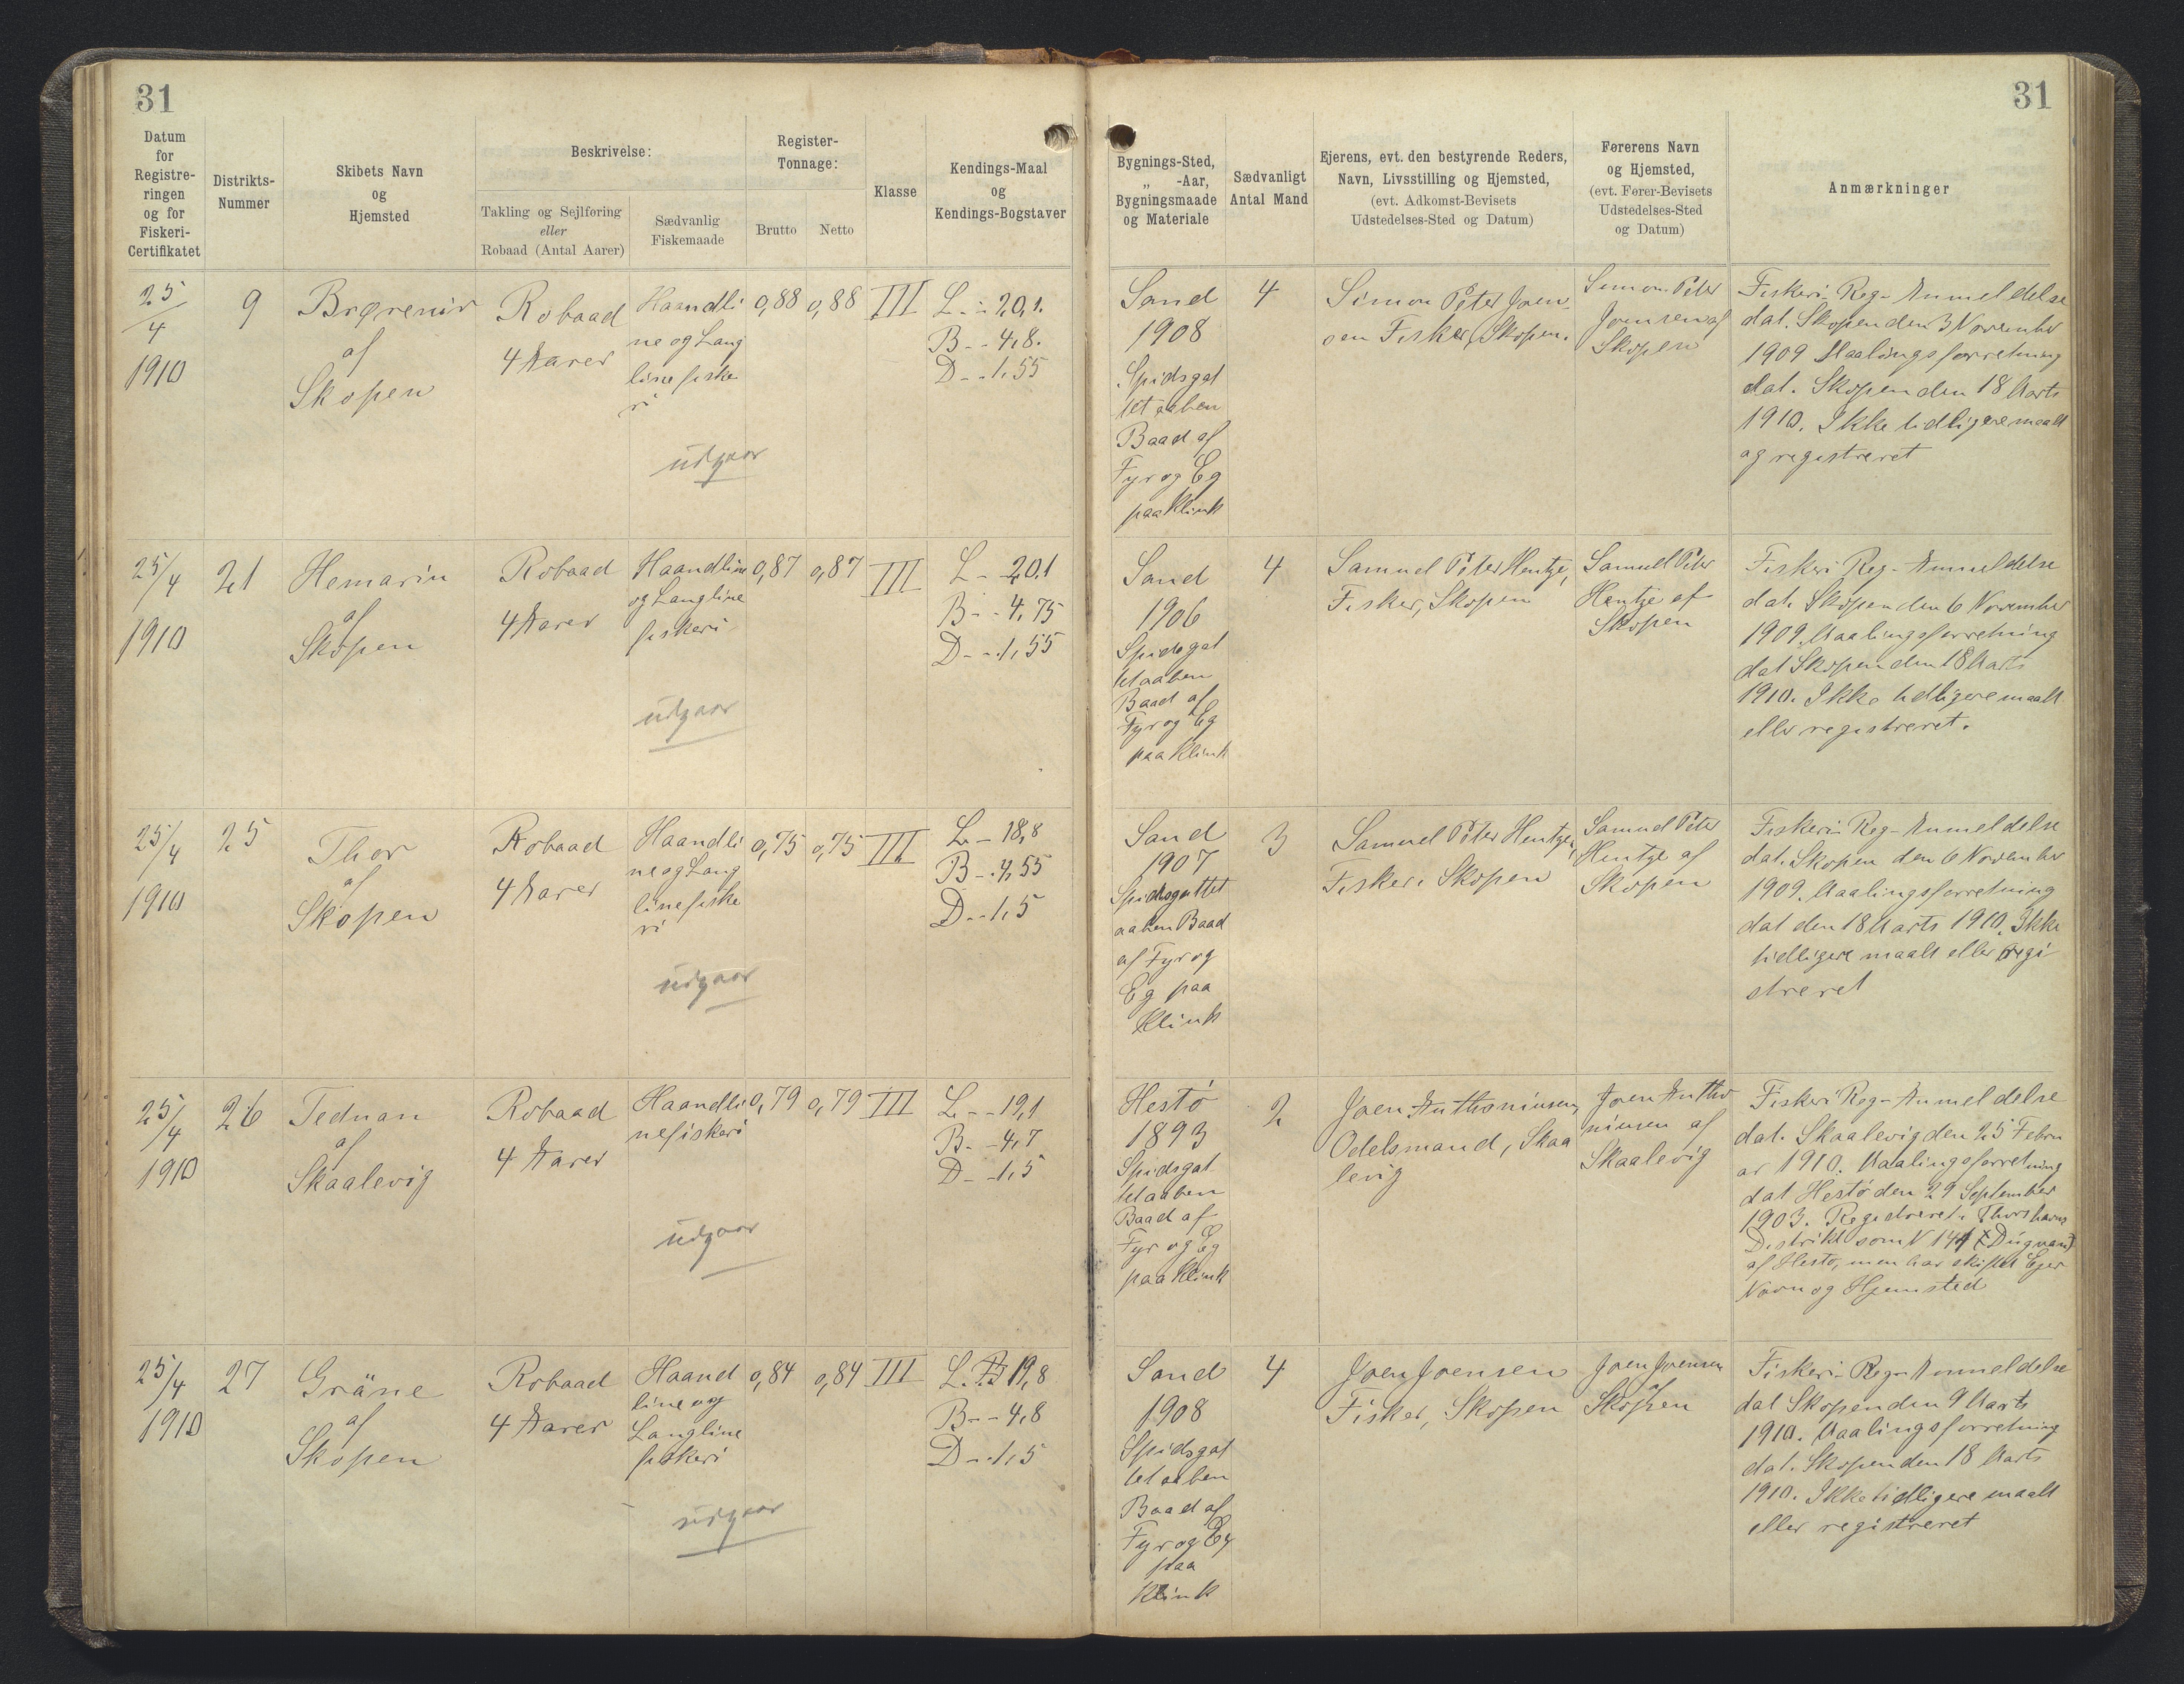 31
31
Datum
for
Registre-
ringen
og for
Fiskeri-
Certifikatet
Distrikts-
Nummer
Skibets Navn
og
Hjemsted
Beskrivelse:
Takling og Sejlføring
eller
Robaad (Antal Aarer)
Sædvanlig
Fiskemaade
Register-
Tonnage:
Brutto
Netto
Klasse
Kendings-Maal
og
Kendings-Bogstaver
Bygnings-Sted,
„ -Aar,
Bygningsmaade
og Materiale
Sædvanligt
Antal Mand
Ejerens, evt. den bestyrende Reders,
Navn, Livsstilling og Hjemsted,
(evt. Adkomst-Bevisets
Udstedelses-Sted og Datum)
Førerens Navn
og Hjemsted,
(evt. Fører-Bevisets
Udstedelses-Sted
og Datum)
Anmærkninger
25/4
1910
9
af
Skopen
Robaad
4 Aarer
Haandli
ne og Lang
linefiske
ri
0,88
0,88
III
L - 20,1.
B - - 4,8.
D - - 1,55
udgaar
Sand
1908
Spidsgat
tet aaben
Baad af
Fyr og Eg
paa Klink
4
Simon Peter Joen
sen Fisker, Skopen.
Simon Peter
Joensen af
Skopen
Fiskeri-Reg-Anmeldelse
dat. Skopen den 3 November
1909 Maalingsforretning
dat. Skopen den 18 Marts
1910. Ikke tidligere maalt
og registreret
25/4
1910
21
Hemarin
af
Skopen
Robaad
4 Aarer
Haandline
og Langline
fiskeri
0,87
0,87
III
L - 20,1
B - - 4,75
D - - 1,55
udgaar
Sand
1906
Spidsgat
tet aaben
Baad af
Fyr og Eg
paa Klink
4
Samuel Peter Hentze,
Fisker, Skopen
Samuel Peter
Hentze af
Skopen
Fiskeri Reg-Anmeldelse
dat. Skopen den 6 November
1909. Maalingsforretning
dat Skopen den 18 Marts
1910. Ikke tidligere maalt
eller registreret.
25/4
1910
25
Thor
af
Skopen
Robaad
4 Aarer
Haandli
ne og Lang
linefiske
ri
0,75
0,75
III
L - 18,8
B - 4,55
D - - 1,5
udgaar
Sand
1907
Spidsgattet
aaben Baad
af Fyr og
Eg paa
Klink
3
Samuel Peter Hentze,
Fisker, Skopen
Samuel Peter
Hentze af
Skopen
Fiskeri-Reg-Anmeldelse
dat. Skopen den 6 November
1909. Maalingsforretning
dat den 18 Marts 1910. Ikke
tidligere maalt eller regi
streret
25/4
1910
26
af
Skaalevig
Robaad
4 Aarer
Haandli
nefiskeri
0,79
0,79
III
L - - 19,1
B - - 4,7
D - - 1,5
udgaar
Hestö
1893
Spidsgat
tet aaben
Baad af
Fyr og Eg
paa Klink
2
Joen Anthoniusen,
Odelsmand, Skaa
levig
Joen Antho
niusen af
Skaalevig
Fiskeri Reg-Anmeldelse
dat. Skaalevig den 25 Febru
ar 1910. Maalingsforretning
dat Hestö den 29 September
1903. Registreret i Thorshavns
Distrikt som N
af Hestö, men har skiftet Ejer
Navn og Hjemsted
25/4
1910
27
Gräne
af
Skopen
Robaad
4 Aarer
Haand
line og
Langline
fiskeri
0,84
0,84
III
L. 19,8
B - - 4,8
D - - 1,5
udgaar
Sand
1908
Spidsgat
tet aaben
Baad af
Fyr og Eg
paa
Klink
4
Joen Joensen
Fisker, Skopen
Joen Joensen
af
Skopen
Fiskeri-Reg-Anmeldelse
dat Skopen den 9 Marts
1910. Maalingsforretning
dat. Skopen den 18 Marts
1910. Ikke tidligere maalt
eller registreret